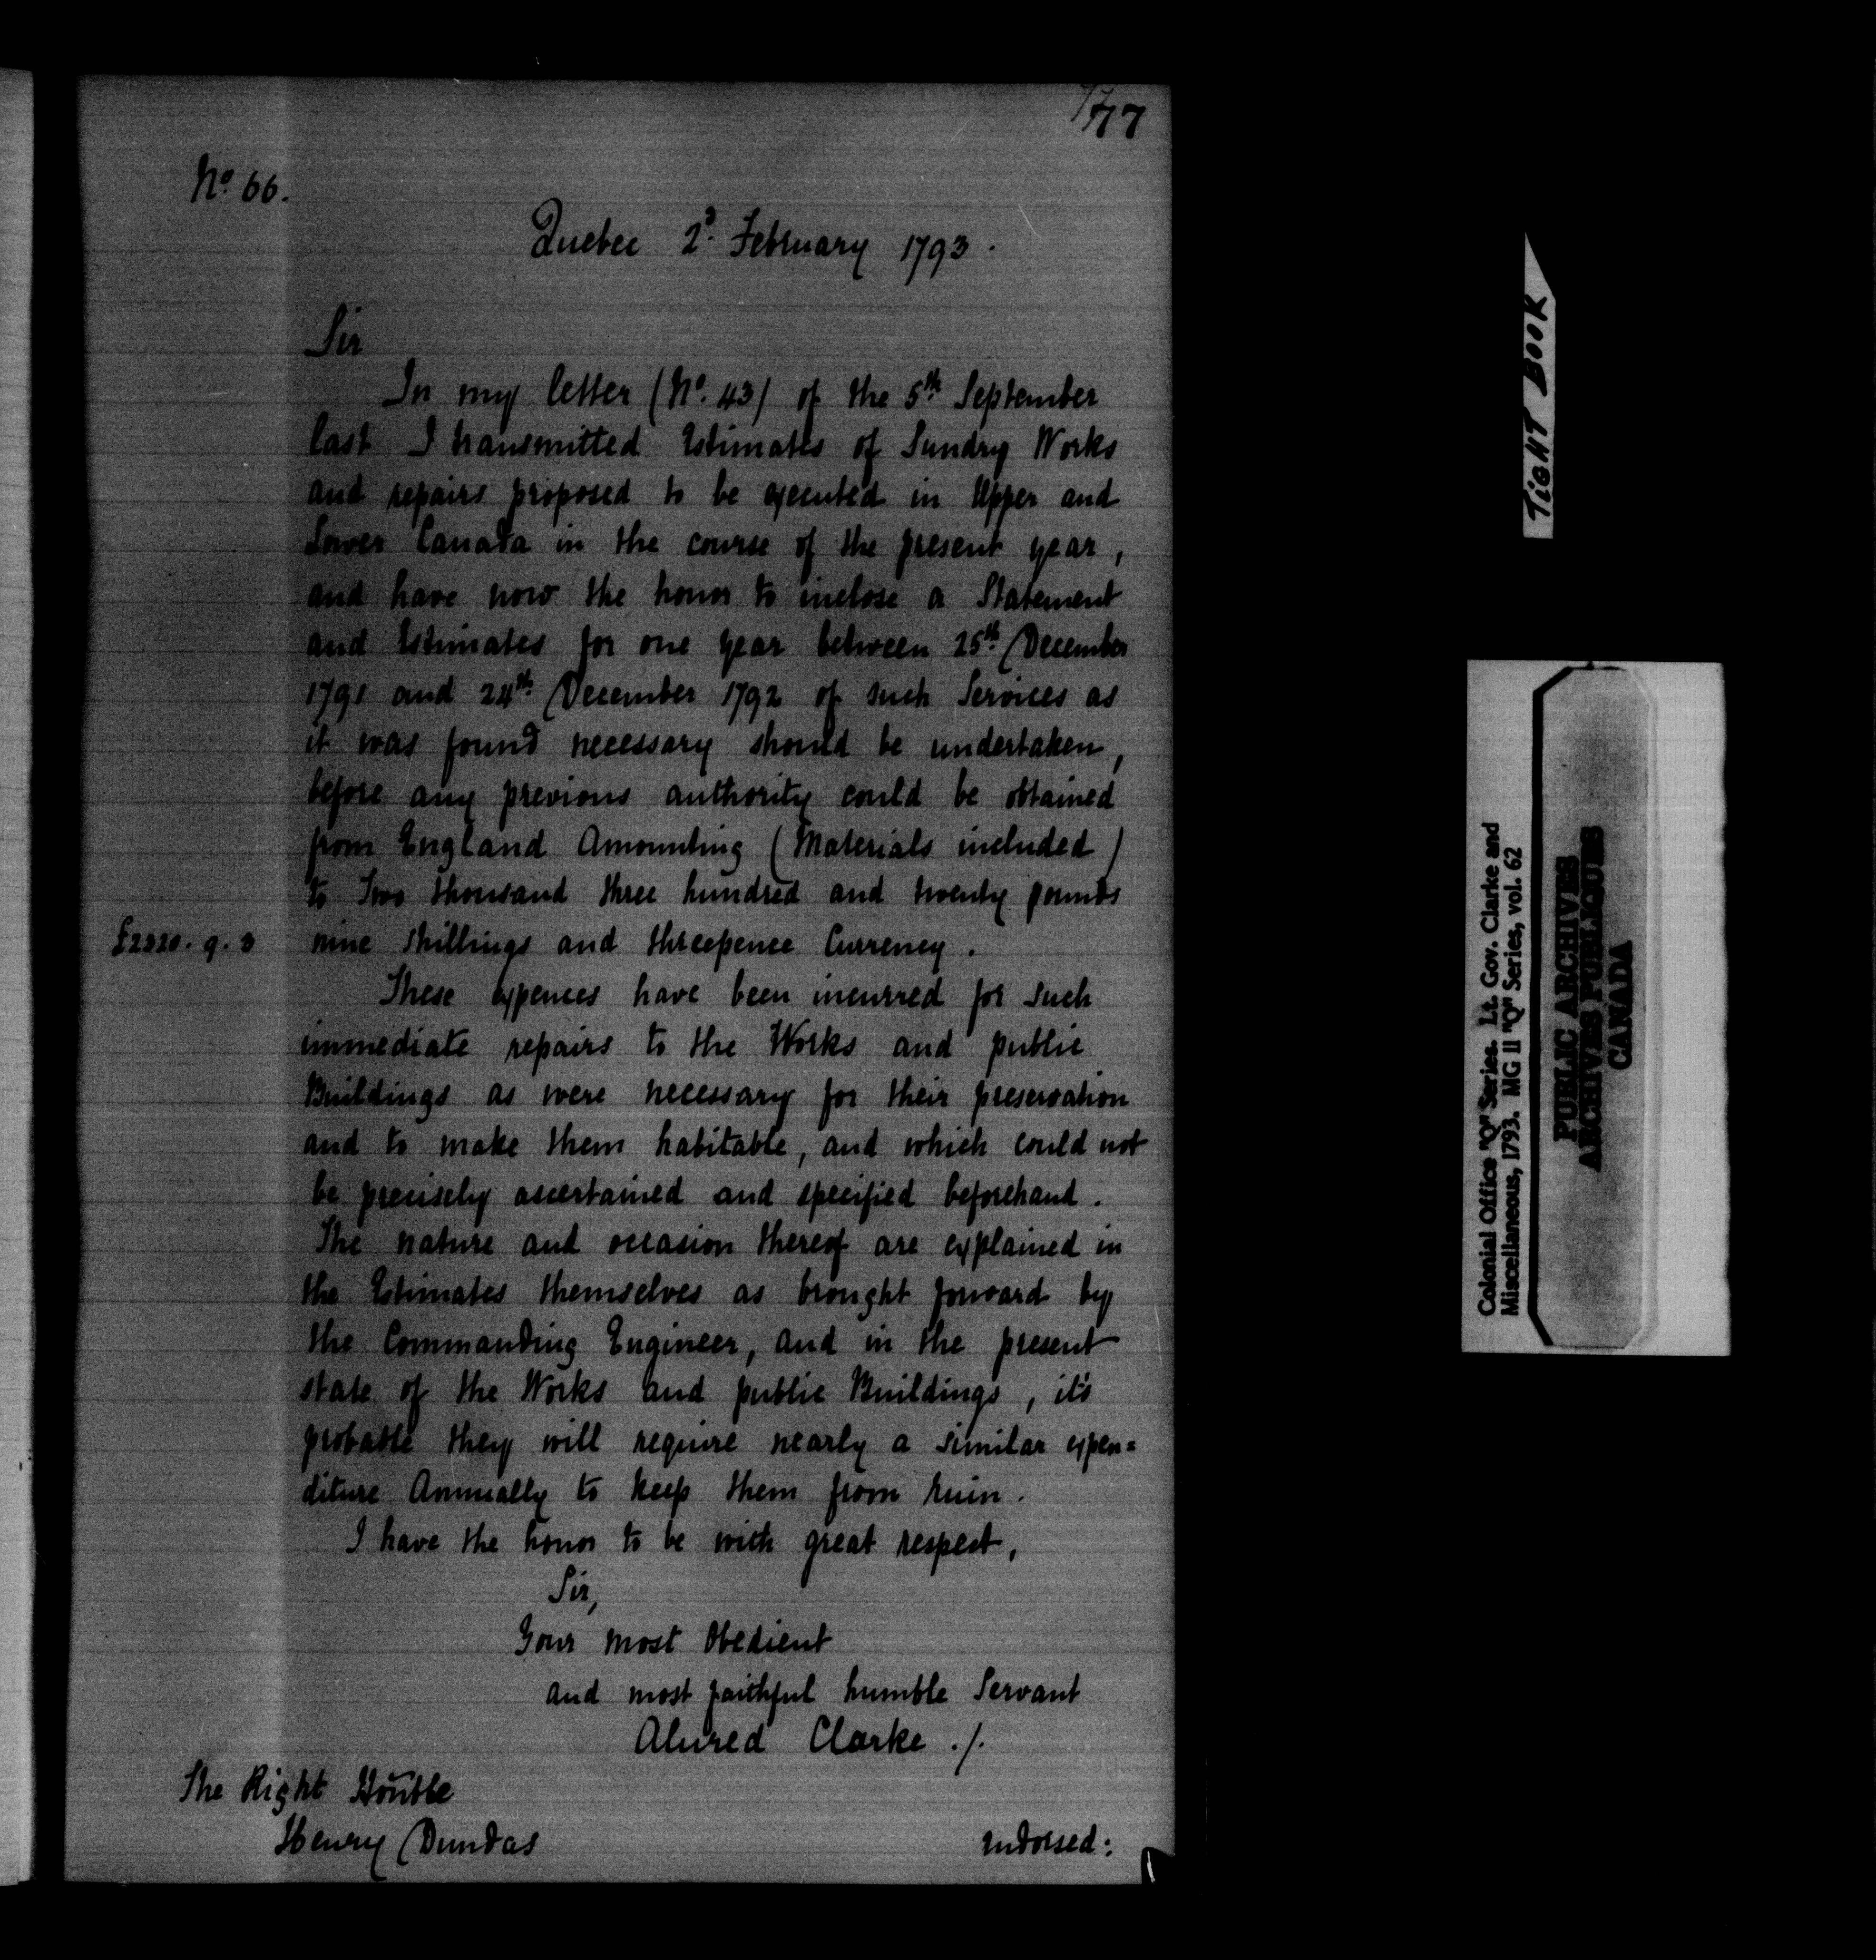 77
No. 66.
Quebec 2d. February 1793.
Sir
In my letter (No. 43) of the 5th September
last I transmitted Estimates of Sundry Works
and repairs proposed to be executed in Upper and
Lower Canada in the course of the present year,
and have now the honor to inclose a Statement
and Estimates for one year between 25th. December
1791 and 24th. December 1792 of such Services as
it was found necessary should be undertaken,
before any previous authority could be obtained
from England Amounting (Materials included)
to Two thousand three hundred and twenty pounds
£2320. 9. 3 nine shillings and threepence Currency.
These expences have been incurred for such
immediate repairs to the Works and public
Buildings as were necessary for their preservation
and to make them habitable, and which could not
be precisely ascertained and specified beforehand.
The nature and occasion thereof are explained in
the Estimates themselves as brought forward by
the Commanding Engineer, and in the present
state of the Works and public Buildings, it's
probable they will require nearly a similar expen=
diture Annually to keep them from ruin.
I have the honor to be with great respect,
Sir,
Your most Obedient
and most faithful humble Servant
Alured Clarke ./.
The Right Honble
Henry Dundas
Endorsed:
TIGHT BOOK
Colonial Office "Q" Series. Lt. Gov. Clarke and
Miscellaneous, 1793. MG 11 "Q" Series, vol. 62
PUBLIC ARCHIVES
ARCHIVES PUBLIQUES
CANADA